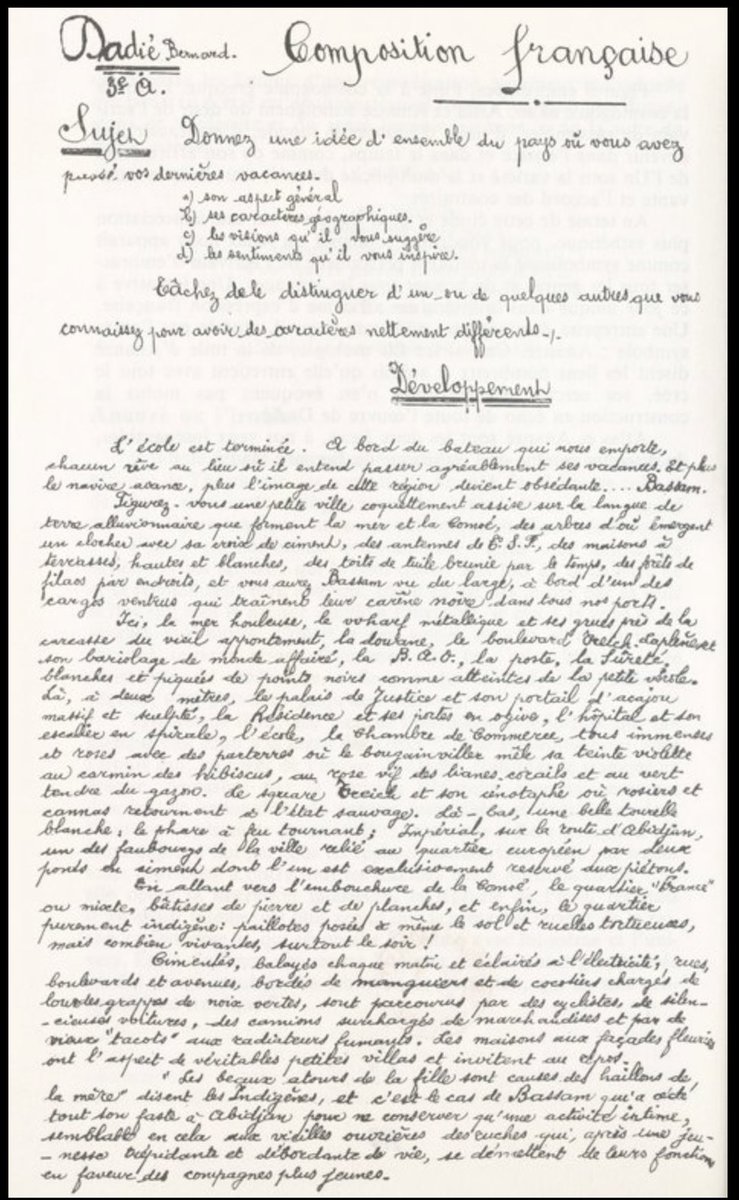 Dadié Bernard. Composition française
3e A.
Sujet Donnez une idée d'ensemble du pays où vous avez
passé vos dernières vacances.
a) son aspect général
b) ses caractères géographiques.
c) les visions qu'il vous suggère
d) les sentiments qu'il vous inspire.
Tâchez de le distinguer d'un ou de quelques autres que vous
connaissez pour avoir des caractères nettement différents-/.
Développement
L'école est terminée. A bord du bateau qui nous emporte,
chacun rêve au lieu où il entend passer agréablement ses vacances. Et plus
le navire avance, plus l'image de cette région devient obsédante.... Bassam.
Figurez-vous une petite ville coquettement assise sur la langue de
terre alluvionnaire que forment la mer et la Comoé, des arbres d'où émergent
un clocher avec sa croix de ciment, des antennes de T.S.F, des maisons à
terrasses, hautes et blanches, des toits de tuile brunie par le temps, des forêts de
filaos par endroits, et vous aurez Bassam vu du large, à bord d'un des
cargos ventrus qui traînent leur carène noire dans tous nos ports.
Ici, la mer houleuse, le wharf métallique et ses grues près de la
carcasse du vieil appontement, la douane, le boulevard Treich-Laplène et
son bariolage de monde affairé, la B.A.O., la poste, la Sûreté,
blanches et piquées de points noirs comme atteintes de la petite vérole.
Là, à deux mètres, le palais de Justice et son portail d'acajou
massif et sculpté, la Résidence et ses portes en ogive, l'hôpital et son
escalier en spirale, l'école, la Chambre de Commerce, tous immenses
et roses avec des parterres où le bougainviller mêle sa teinte violette
au carmin des hibiscus, au rose vif des lianes-corails et au vert
tendre du gazon. Le square Treich et son cénotaphe où rosiers et
cannas retournent à l'état sauvage. Là-bas, une belle tourelle
blanche: le phare à feu tournant; Impérial, sur la route d'Abidjan,
un des faubourgs de la ville relié au quartier européen par deux
ponts en ciment dont l'un est exclusivement reservé aux piétons.
En allant vers l'embouchure de la Comoé, le quartier "France"
ou mixte, bâtisses de pierre et de planches, et enfin, le quartier
purement indigène: paillotes posées à même le sol et ruelles tortueuses,
mais combien vivantes, surtout le soir!
Cimentés, balayés chaque matin et éclairés à l'électricité, rues,
boulevards et avenues, bordés de manguiers et de cocotiers chargés de
lourdes grappes de noix vertes, sont parcourus par des cyclistes, de silen-
-cieuses voitures, des camions surchargés de marchandises et par de
vieux "tacots" aux radiateurs fumants. Les maisons aux façades fleuries
ont l'aspect de véritables petites villas et invitent au repos.
"Les beaux atours de la fille sont causes des haillons de
la mère" disent les Indigènes, et c'est le cas de Bassam qui a cédé
tout son faste à Abidjan pour ne conserver qu'une activité intime,
semblable en cela aux vieilles ouvrières des ruches qui, après une jeu-
-nesse trépidante et débordante de vie, se démettent de leurs fonctions
en faveur des compagnes plus jeunes.-